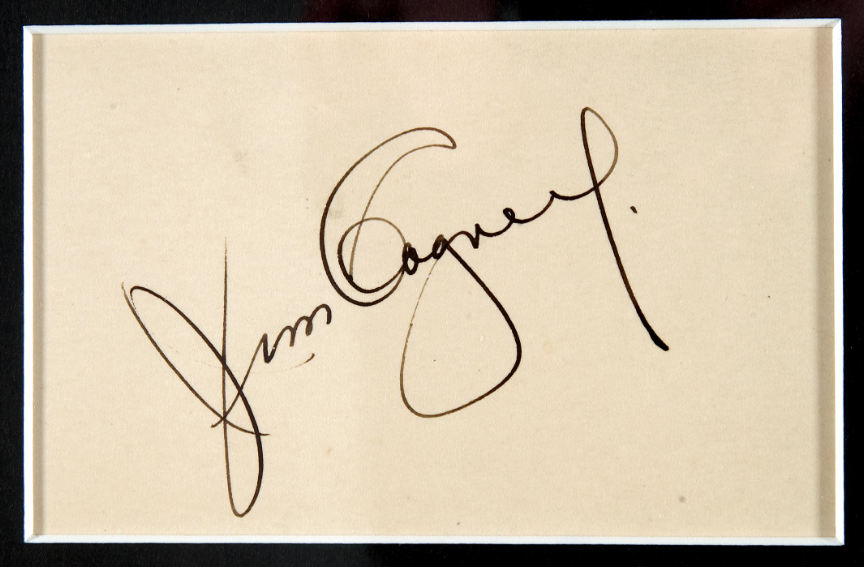 Jim Cagney.